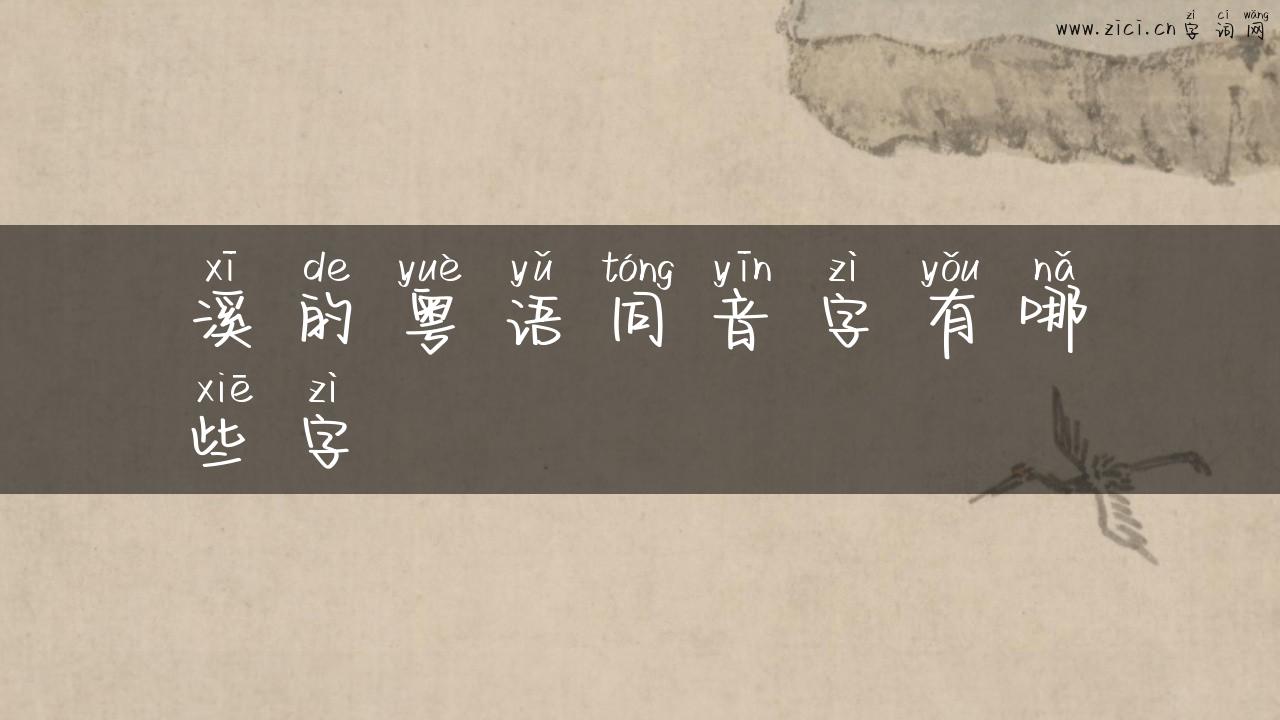 zì cí wǎng
www.zici.cn 字词网
xī de yuè yǔ tóng yīn zì yǒu nǎ
溪的粤语同音字有哪
xiē zì
些字